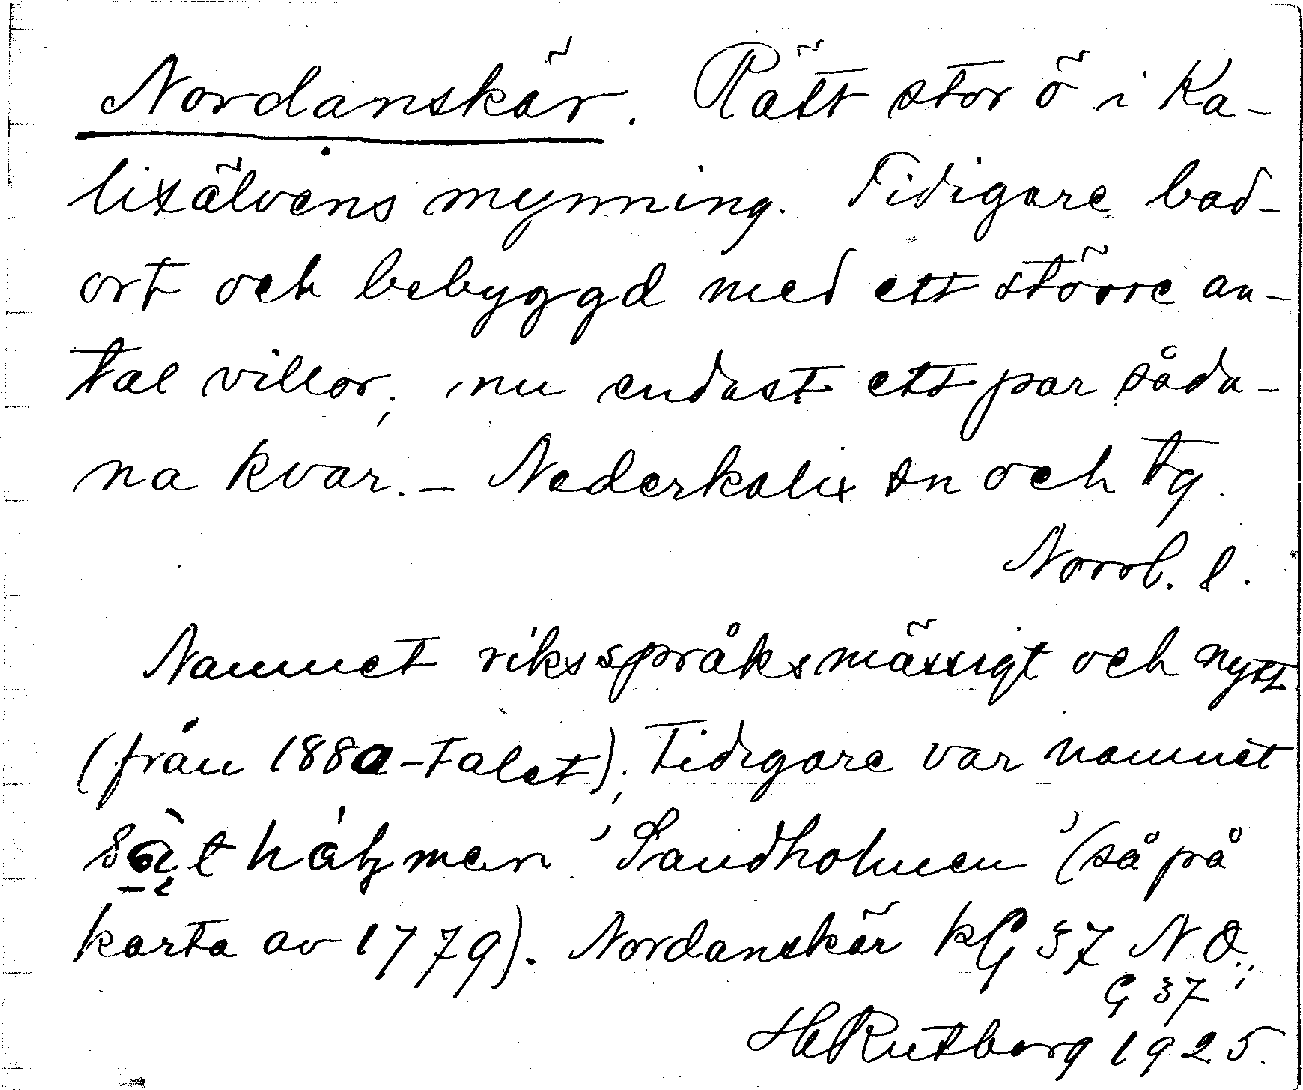 Nordanskär. Rätt stor ö i Ka-
lixälvens mynning. Tidigare bad-
ort och bebyggd med ett större an-
tal villor, nu endast ett par såda-
na kvar. – Nederkalix sn och tg.
Norrb. l.
Namnet riksspråksmässigt och nytt
(från 1880-talet); tidigare var namnet
'Sandholmen' (så på
karta av 1779). Nordanskär kG 37 NO;
G 37
HRutberg 1925.